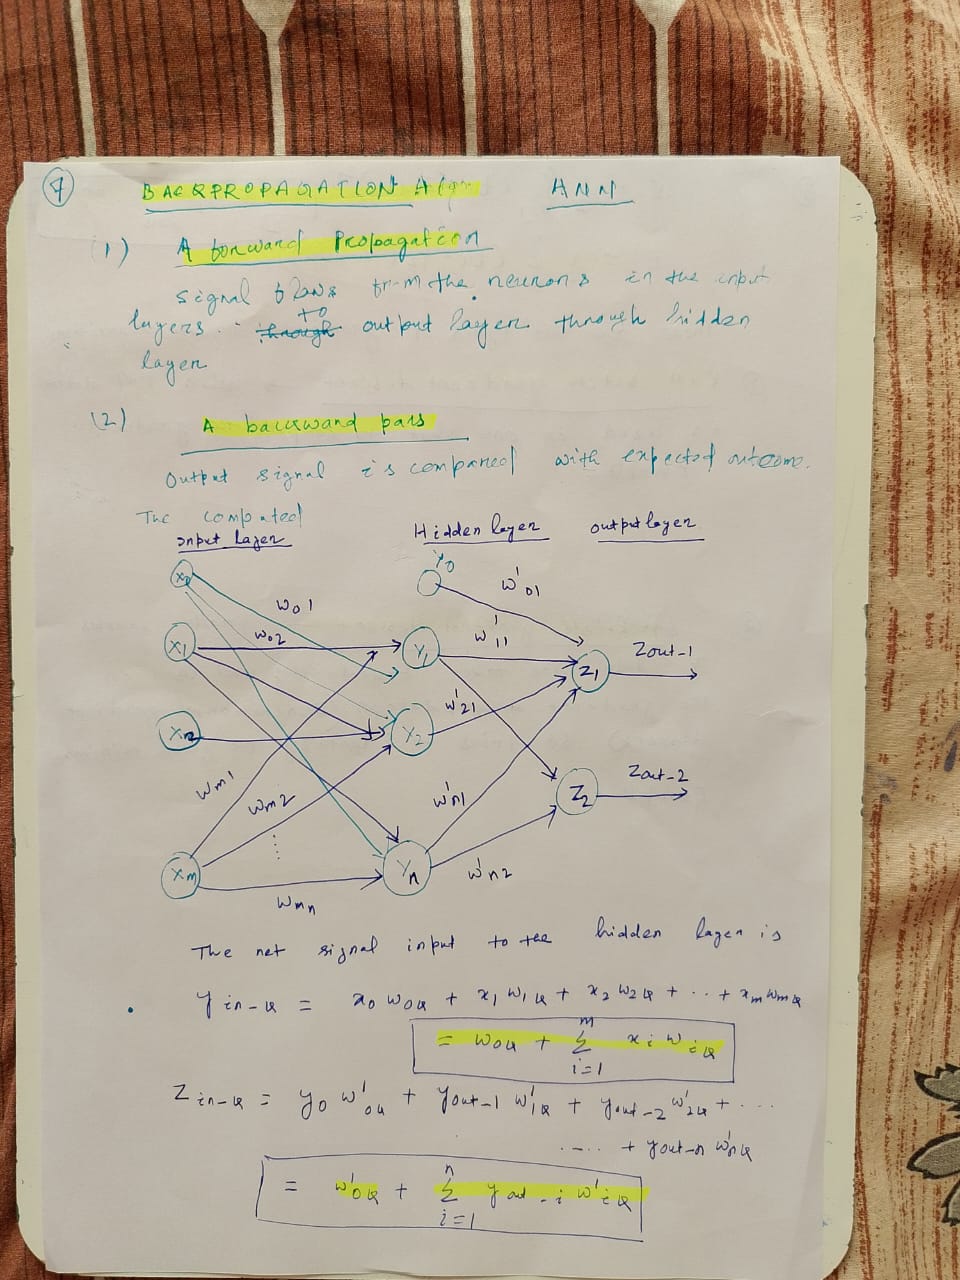 7
BACKPROPAGATION Algo ANN
(1) A forward Propagation
signal flows from the neurons in the input
layers. through to output layer through hidden
layer
(2) A backward pass
Output signal is compared with expected outcome.
The computed
Input Layer Hidden layer output layer
x0 Y0
w01 w'01
w02 w'11
x1 Y1 Z1 Zout-1
w'21
x2 Y2
wm1 wm2 w'n1 Z2 Zout-2
xm Yn w'n2
wmn
The net signal input to the hidden layer is
y in-k = x0 w0k + x1 w1k + x2 w2k + .. + xm wmk
= w0k + Σ i=1 m xi wik
z in-k = y0 w'0k + yout-1 w'1k + yout-2 w'2k + ...
.... + yout-n w'nk
= w'0k + Σ i=1 n yout-i w'ik